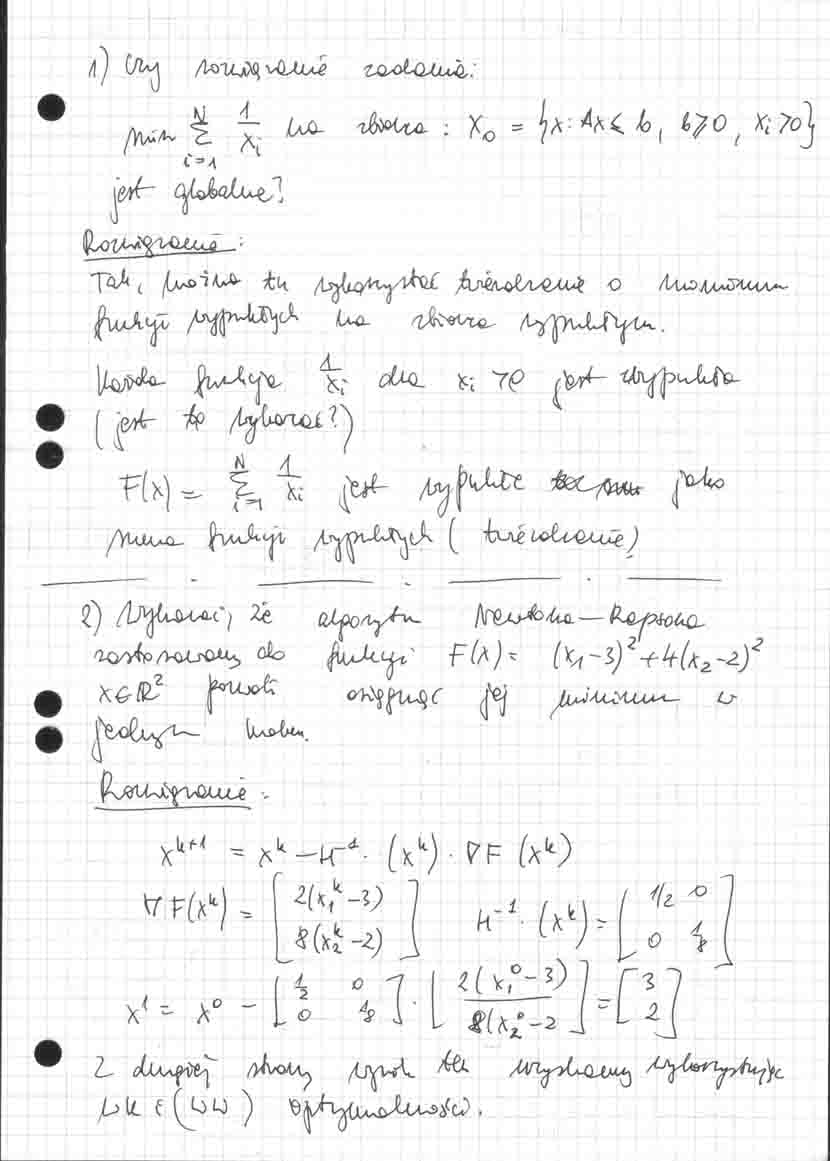 1) Czy rozwiązanie zadania:
min \sum_{i=1}^{N} \frac{1}{x_i} na zbiorze : X_0 = {x: Ax ≤ b, b ≥ 0, x_i > 0}
jest globalne?
Rozwiązanie:
Tak, można tu wykorzystać twierdzenie o minimum
funkcji wypukłych na zbiorze wypukłym.
Każda funkcja \frac{1}{x_i} dla x_i > 0 jest wypukła
(jest to wykazać?)
F(x) = \sum_{i=1}^{N} \frac{1}{x_i} jest wypukłe jako
suma funkcji wypukłych (twierdzenie)
2) Wykazać, że algorytm Newtona-Rapsona
zastosowany do funkcji F(x) = (x_1-3)^2 + 4(x_2-2)^2
x ∈ R^2 pozwoli osiągnąć jej minimum w
jednym kroku.
Rozwiązanie:
x^{k+1} = x^k - H^{-1} · (x^k) · ∇F (x^k)
∇F(x^k) = [2(x_1^k-3) 8(x_2^k-2)] H^{-1} · (x^k) = [1/2 0 0 1/8]
x^1 = x^0 - [1/2 0 0 1/8] · [2(x_1^0-3) 8(x_2^0-2] = [3 2]
Z drugiej strony wynik ten uzyskamy wykorzystując
WK i (WW) optymalności.